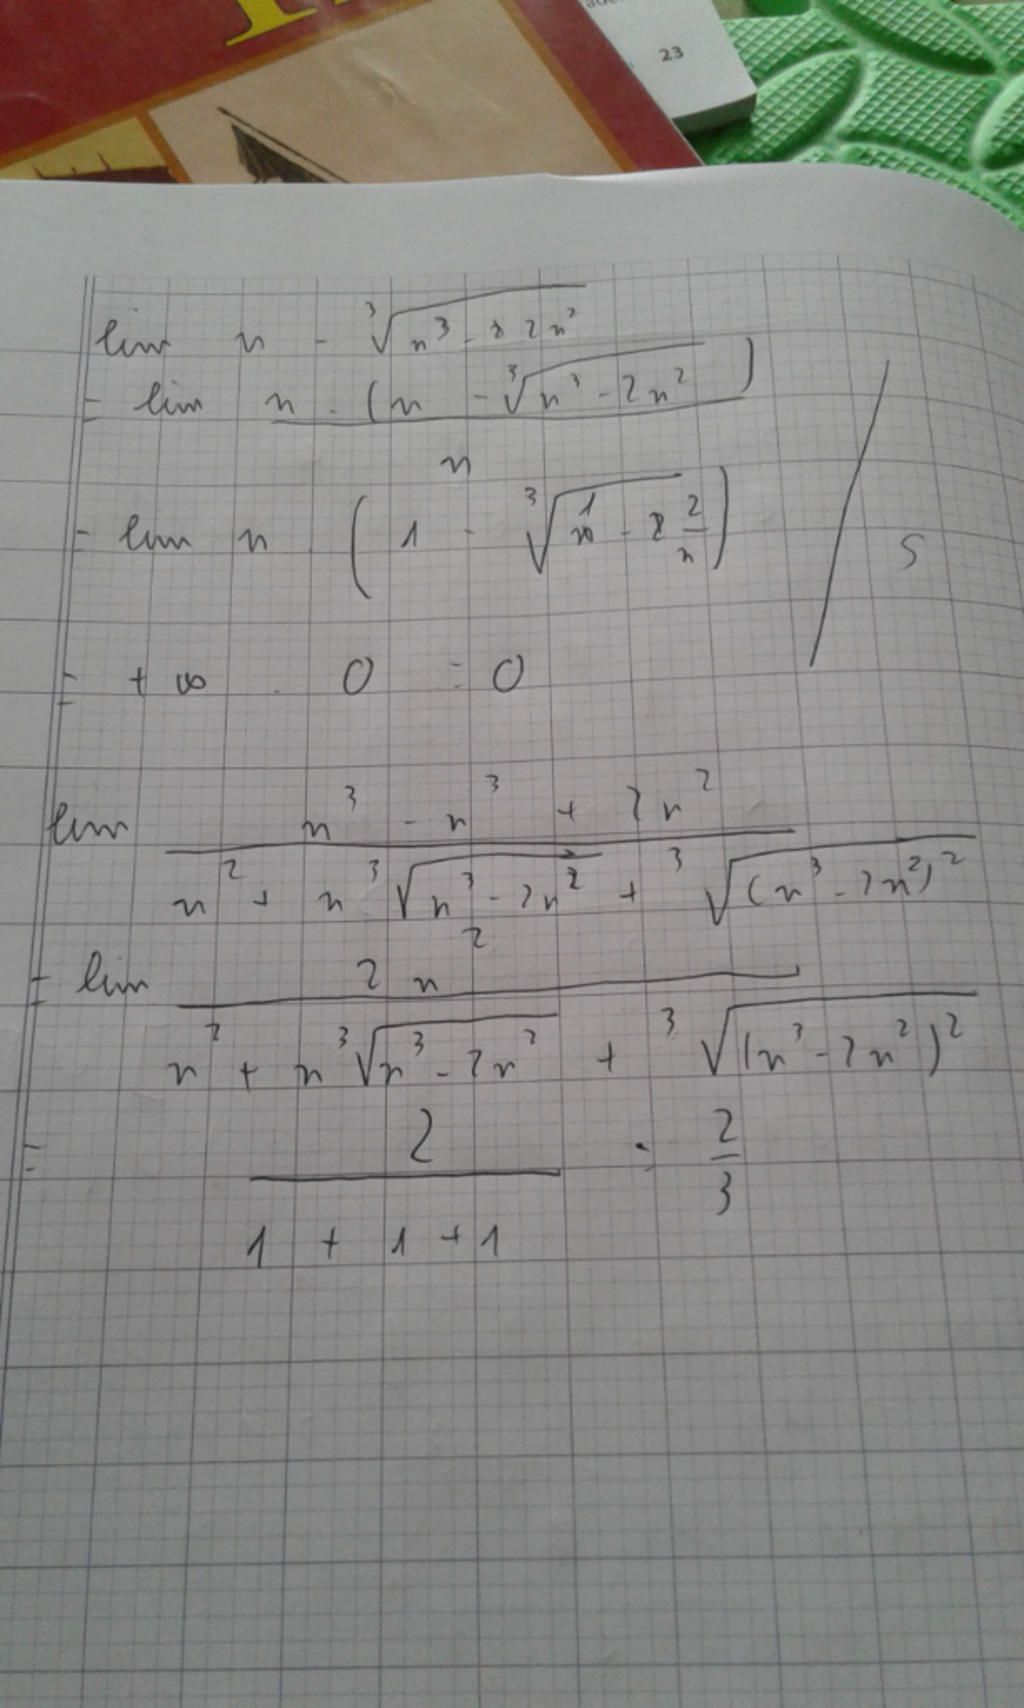 23
lim n - ∛(n³ - 2n²)
= lim n . (n - ∛(n³ - 2n²)) / n
= lim n . (1 - ∛(1 - 2/n))
S
= +∞ . 0 = 0
lim (n³ - n³ + 2n²) / (n² + n ∛(n³ - 2n²) + ∛((n³ - 2n²)²))
= lim 2n² / (n² + n ∛(n³ - 2n²) + ∛((n³ - 2n²)²))
= 2 / (1 + 1 + 1) = 2/3